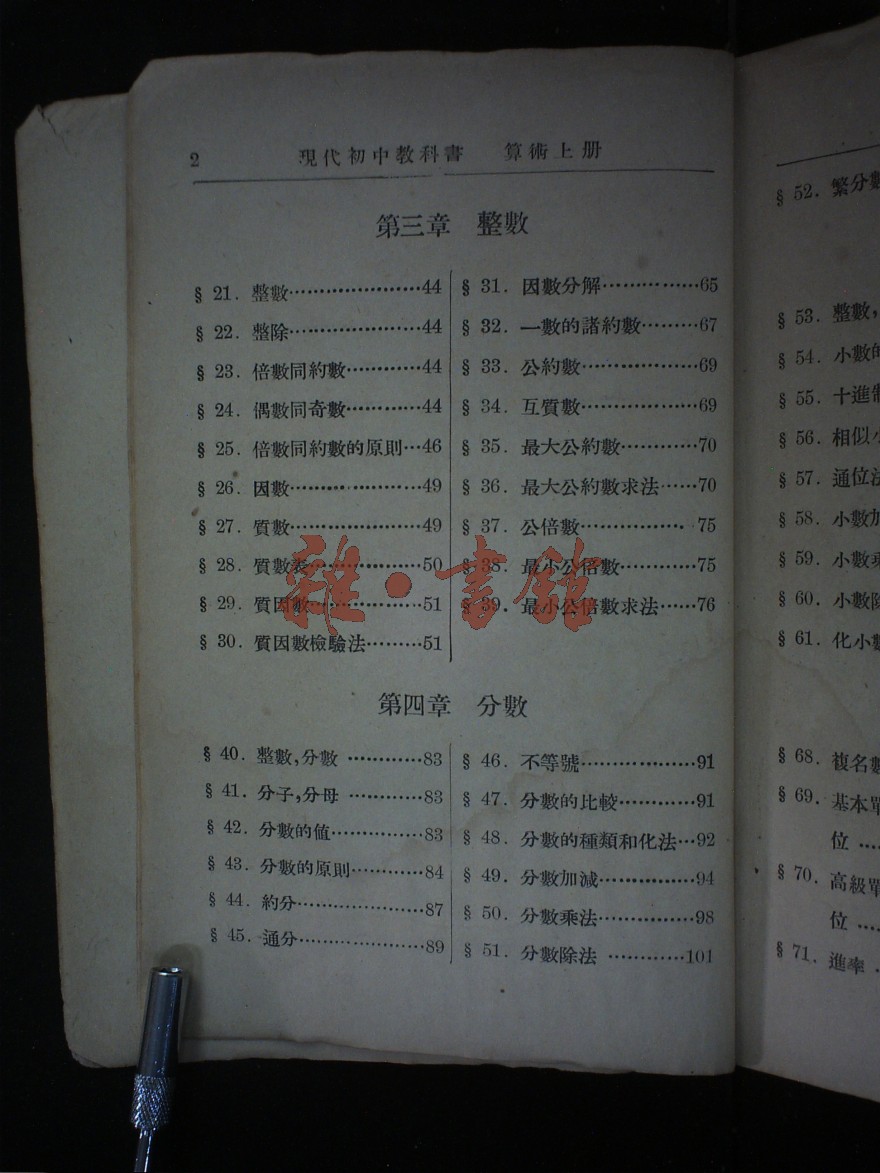 2 現代初中教科書 算術上册
第三章 整數
§ 21. 整數…………………44
§ 22. 整除…………………44
§ 23. 倍數同約數…………44
§ 24. 偶數同奇數…………44
§ 25. 倍數同約數的原則…46
§ 26. 因數…………………49
§ 27. 質數…………………49
§ 28. 質數表………………50
§ 29. 質因數………………51
§ 30. 質因數檢驗法………51
§ 31. 因數分解……………65
§ 32. 一數的諸約數………67
§ 33. 公約數………………69
§ 34. 互質數………………69
§ 35. 最大公約數…………70
§ 36. 最大公約數求法……70
§ 37. 公倍數………………75
§ 38. 最小公倍數…………75
§ 39. 最小公倍數求法……76
第四章 分數
§ 40. 整數,分數 …………83
§ 41. 分子,分母 …………83
§ 42. 分數的值……………83
§ 43. 分數的原則…………84
§ 44. 約分…………………87
§ 45. 通分…………………89
§ 46. 不等號………………91
§ 47. 分數的比較…………91
§ 48. 分數的種類和化法…92
§ 49. 分數加減……………94
§ 50. 分數乘法……………98
§ 51. 分數除法 …………101
雜·書館
§ 52. 繁分數
§ 53. 整數,
§ 54. 小數的
§ 55. 十進制
§ 56. 相似小
§ 57. 通位法
§ 58. 小數加
§ 59. 小數乘
§ 60. 小數除
§ 61. 化小數
§ 68. 複名數
§ 69. 基本單
位 ……
§ 70. 高級單
位 ……
§ 71. 進率